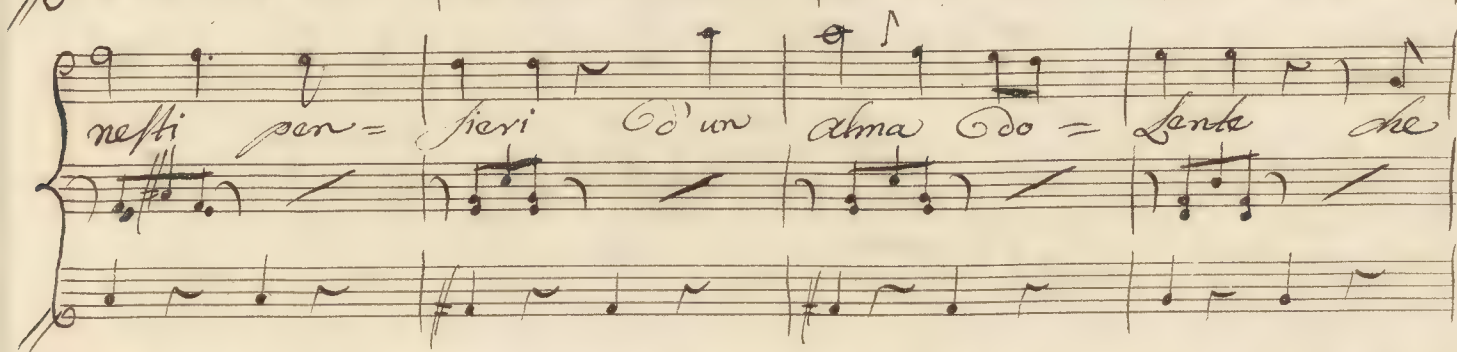 nesti pen= sieri D'un alma Do= Lente che